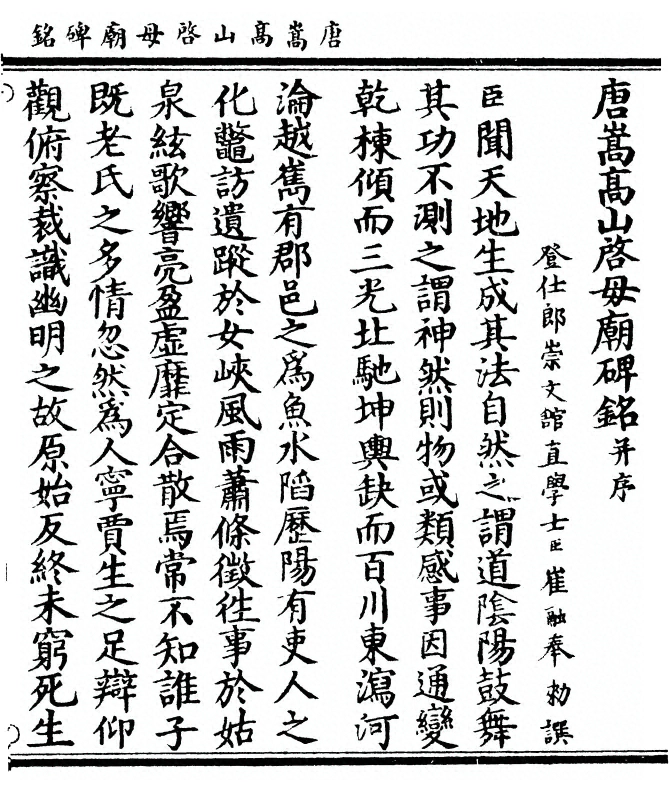 唐嵩高山啓母廟碑銘
唐嵩高山啓母廟碑銘并序
登仕郎崇文舘直學士臣崔融奉勑撰
臣聞天地生成其法自然之謂道陰陽鼓舞
其功不測之謂神然則物或類感事因通變
乾棟傾而三光北馳坤輿缺而百川東瀉河
淪越雋有郡邑之爲魚水䧟歷陽有吏人之
化鼈訪遺蹤於女峽風雨蕭條徵徃事於姑
泉絃歌響亮盈虛靡定合散焉常不知誰子
既老氏之多情忽然爲人寧賈生之足辯仰
觀俯察裁識幽明之故原始反終未窮死生